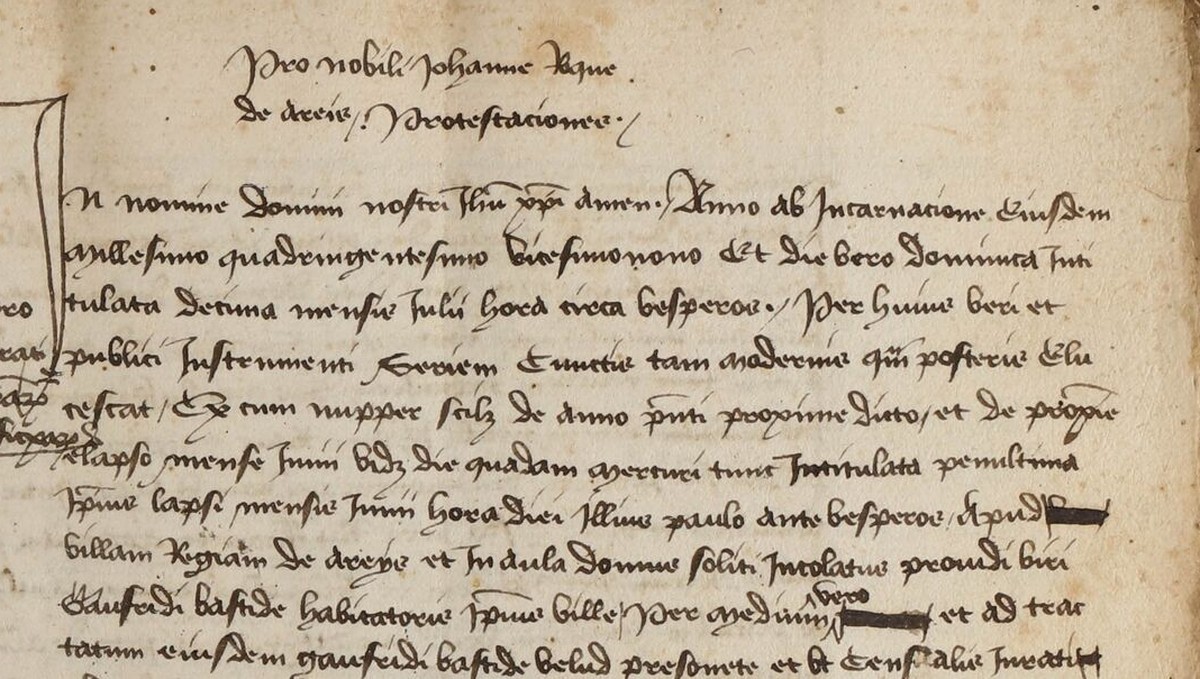 Pro nobili Johanne Rque
de Areis / Protestaciones
In nomine domini nostri Jhu xpi amen. Anno ab Incarnacione Eiusdem
Millesimo quadringentesimo vicesimonono Et die vero dominica Inti
tulata decima mensis Iulii hora circa vesperos. Per huius veri et
publici Instrumenti Seriem Cunctis tam modernis qm posteris Elu
cescat / Ex cum nupper scilz de anno pnti proxime dicto / et de proxie
Elapso mense Iunii vidz die quadam mercuri tunc Intitulata penultima
Ipius lapsi mensis Iunii hora diei Illius paulo ante vesperos, Apud
villam Regiam de areys et In aula domus soliti Incolatus prouidi viri
Gaufridi bastide habitatoris Ipius ville / Per medium vero et ad trac
tatum eiusdem gaufridi bastide velud presonete et vt Censalis Iurati